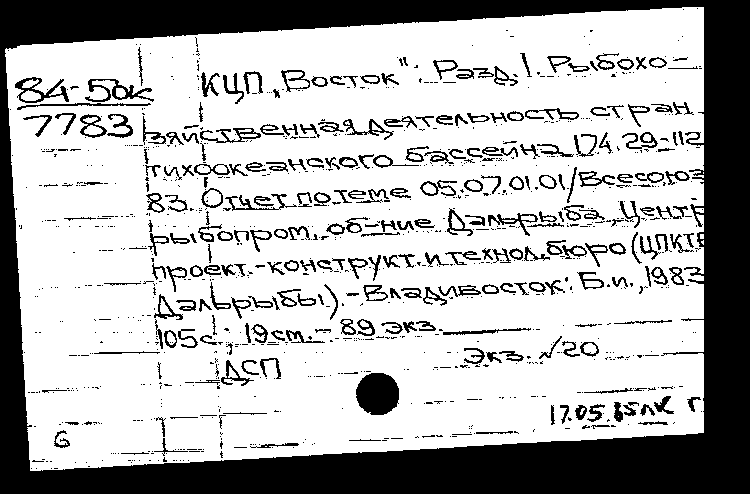 84-5ок
7783
КЦП „Восток": Разд. 1. Рыбохо-
зяйственная деятельность стран
тихоокеанского бассейна 174.29-112
83. Отчет по теме 05.07.01.01/Всесоюз
рыбопром. об-ние Дальрыба, Центр
проект.-конструкт. и технол. бюро (ЦПКТБ
Дальрыбы).-Владивосток: Б.и., 1983
105с.; 19см.- 89 экз.
ДСП Экз. №20
17.05.85лк Г
6